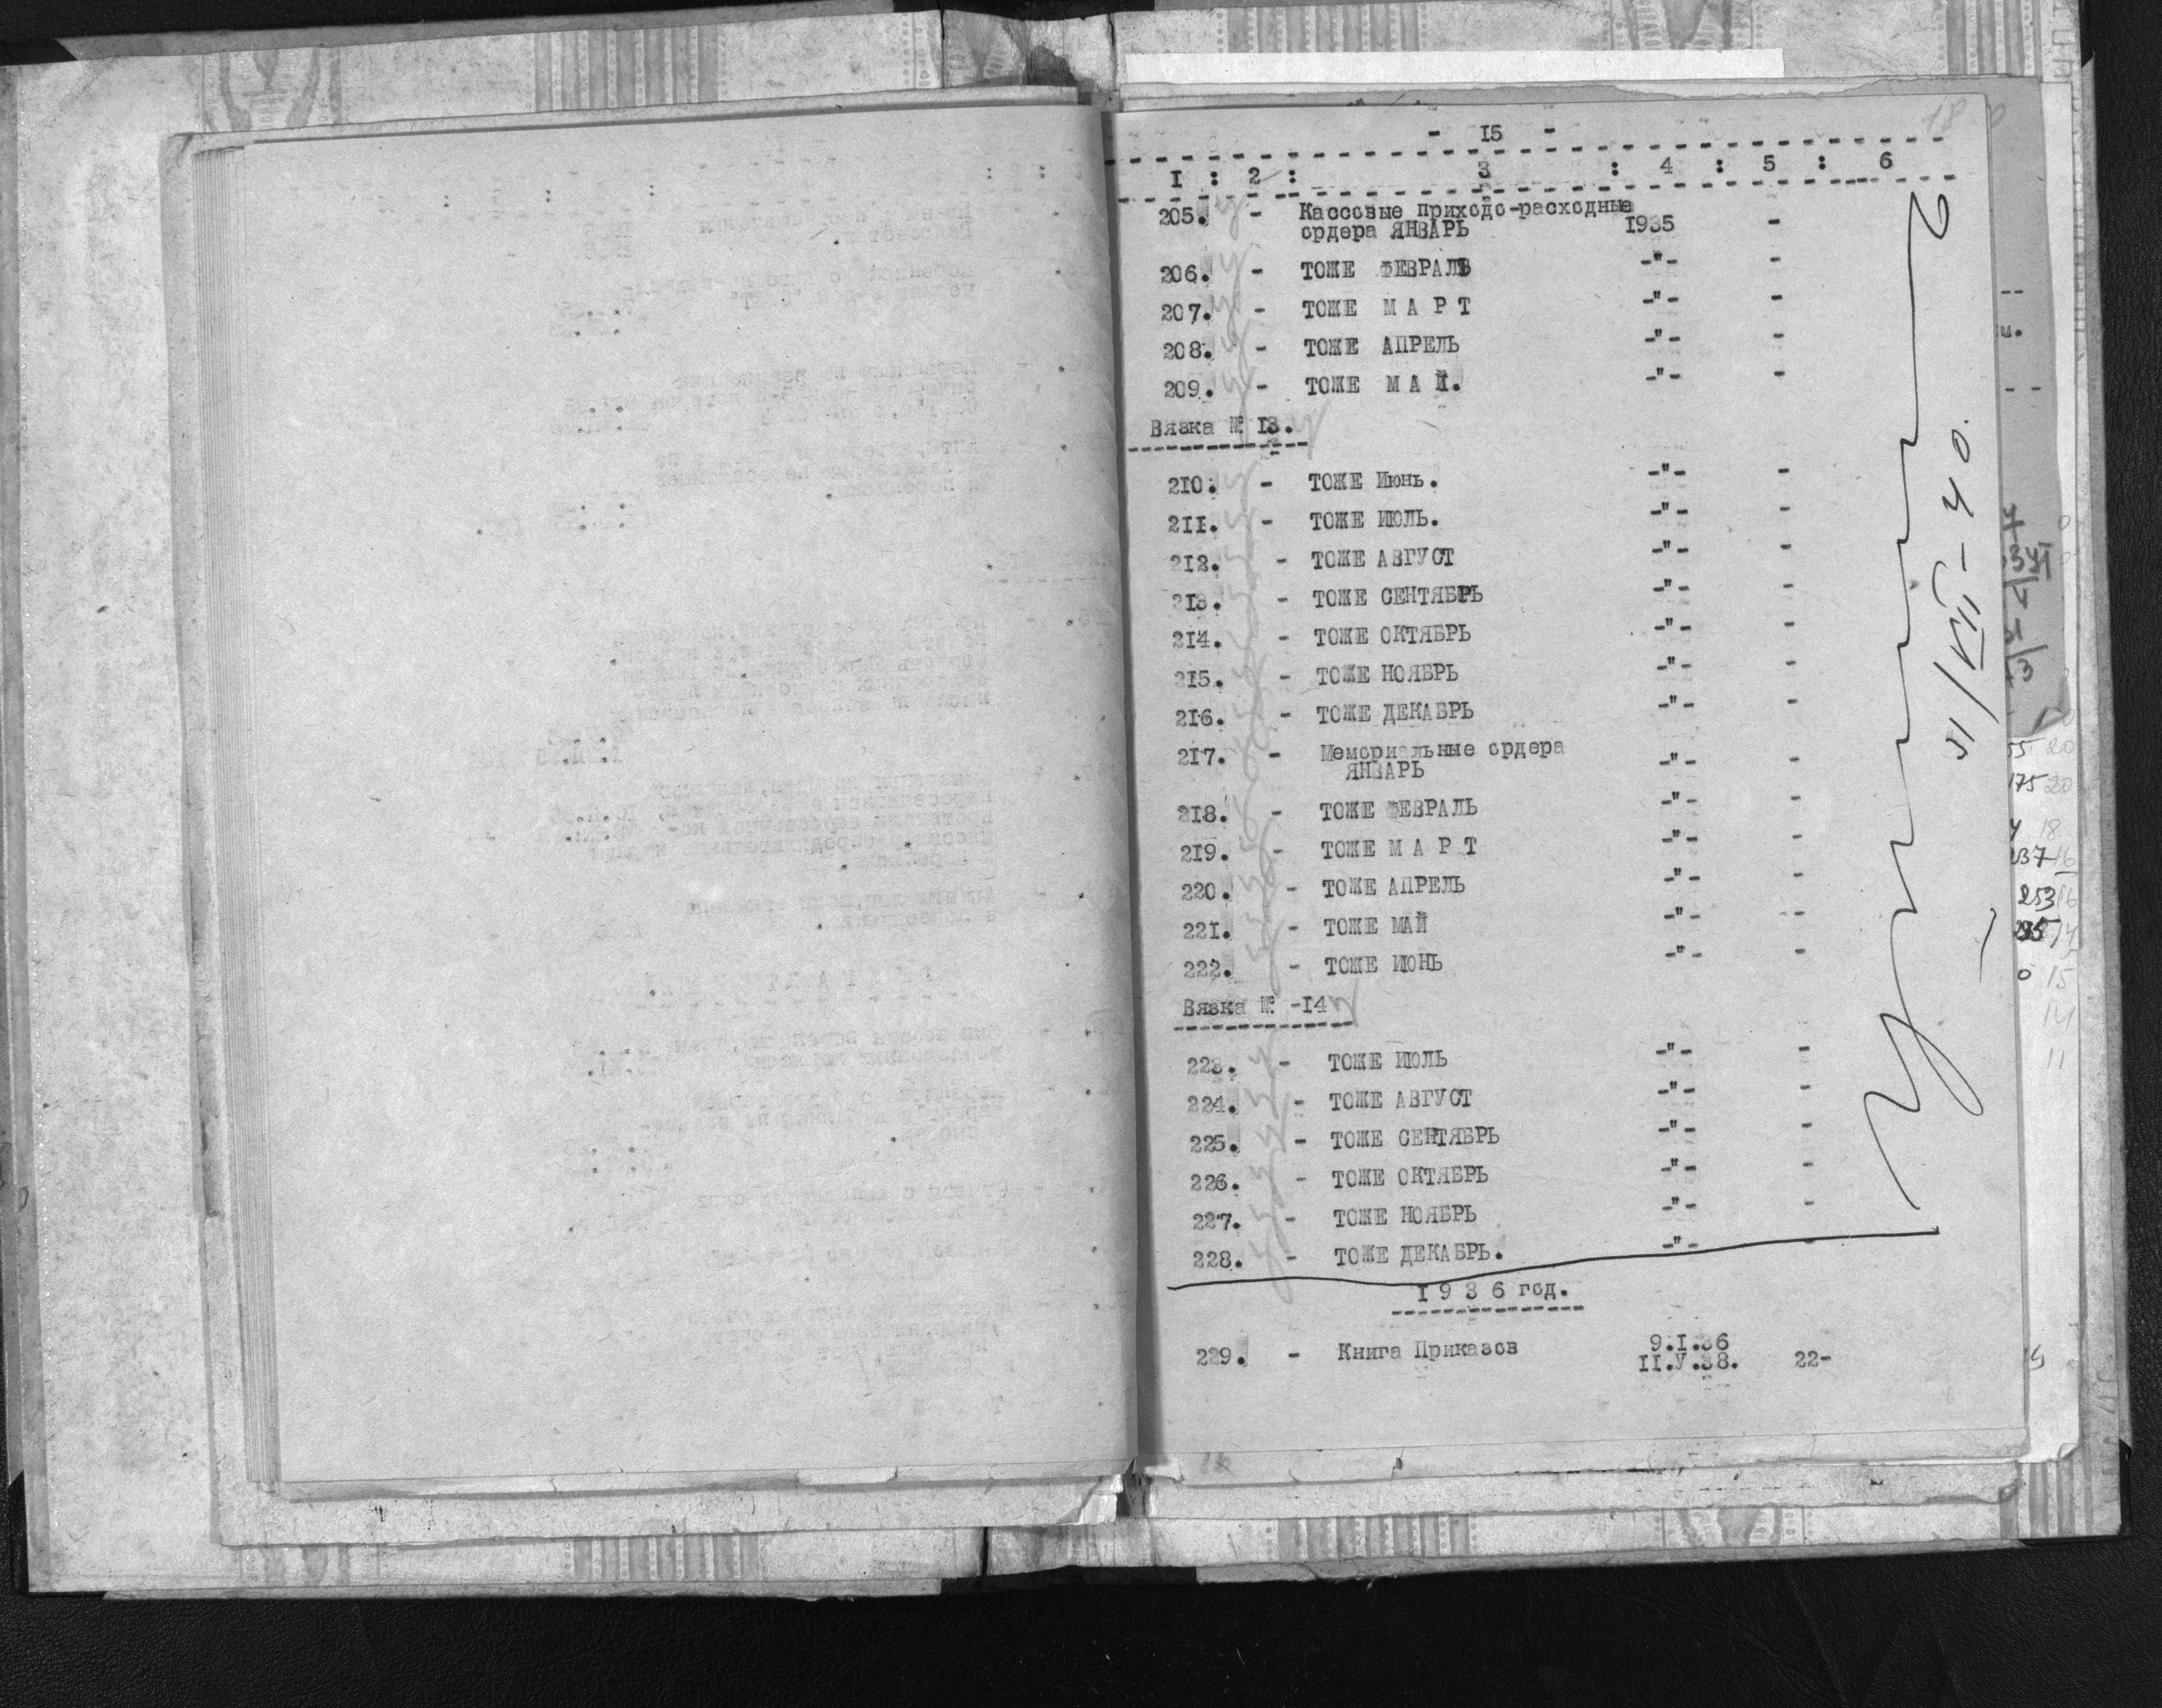 18
- I5 -
I : 2 : 3 : 4 : 5 : 6
205. - Кассовые приходо-расходные
ордера ЯНВАРЬ 1935 -
206. - ТОЖЕ ФЕВРАЛЬ -"- -
207. - ТОЖЕ М А Р Т -"- -
208. - ТОЖЕ АПРЕЛЬ -"- -
209. - ТОЖЕ М А Й. -"- -
Вязка № I3.
210. - ТОЖЕ Июнь. -"- -
2II. - ТОЖЕ ИЮЛЬ. -"- -
2I2. - ТОЖЕ АВГУСТ -"- -
2I3. - ТОЖЕ СЕНТЯБРЬ -"- -
2I4. - ТОЖЕ ОКТЯБРЬ -"- -
2I5. - ТОЖЕ НОЯБРЬ -"- -
2I6. - ТОЖЕ ДЕКАБРЬ -"- -
2I7. - Мемориальные ордера
ЯНВАРЬ -"- -
2I8. - ТОЖЕ ФЕВРАЛЬ -"- -
2I9. - ТОЖЕ М А Р Т -"- -
220. - ТОЖЕ АПРЕЛЬ -"- -
22I. - ТОЖЕ МАЙ -"- -
222. - ТОЖЕ ИЮНЬ -"- -
Вязка № -I4
223. - ТОЖЕ ИЮЛЬ -"- -
224. - ТОЖЕ АВГУСТ -"- -
225. - ТОЖЕ СЕНТЯБРЬ -"- -
226. - ТОЖЕ ОКТЯБРЬ -"- -
227. - ТОЖЕ НОЯБРЬ -"- -
228. - ТОЖЕ ДЕКАБРЬ. -"- -
I 9 3 6 год.
229. - Книга Приказов 9.I.36
II.V.38. 22-